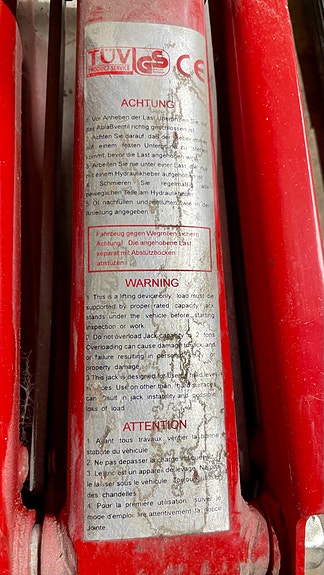 TÜV
PRODUCT SERVICE
GS
CE
ACHTUNG
Vor Anheben der Last
das Ablaßventil richtig geschlossen ist
Achten Sie darauf, daß der
auf einem festen Untergrund zu
kommt, bevor die Last angehoben wird
Arbeiten Sie nie unter einer Last, die nur
mit einem Hydraulikheber aufgehoben
4. Schmieren Sie regelmäßig alle
beweglichen Teile am Hydraulikheber
5. Öl nachfüllen und entlüften wie in der
Anleitung angegeben.
Fahrzeug gegen Wegrollen sichern
Achtung! Die angehobene Last
separat mit Abstützböcken
abstützen
WARNING
1. This is a lifting device only, load must be
supported by proper rated capacity jack
stands under the vehicle before starting
inspection or work.
2. Do not overload Jack capacity 2 tons
Overloading can cause damage to jack and
or failure resulting in personal
property damage.
3. This jack is designed for use on hard level
surfaces. Use on other than hard surfaces
can result in jack instability and possible
loss of load
ATTENTION
1. Avant tous travaux, vérifier la bonne
stabilité du véhicule
2. Ne pas dépasser la charge maximum
3. Le cric est un appareil de levage. Ne pas
le laisser sous le véhicule. Toujours
des chandelles
4. Pour la première utilisation, suivre le
mode d'emploi, lire attentivement la notice
Jointe.